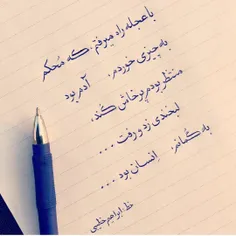 با عجله راه میرفتم، که مُحکم
به چیزی خوردم، آدم بود
منتظر بودم پرخاش کند،
لبخندی زد و رفت ...
به گُمانم انسان بود ...
خط: ابراهیم خلیلی